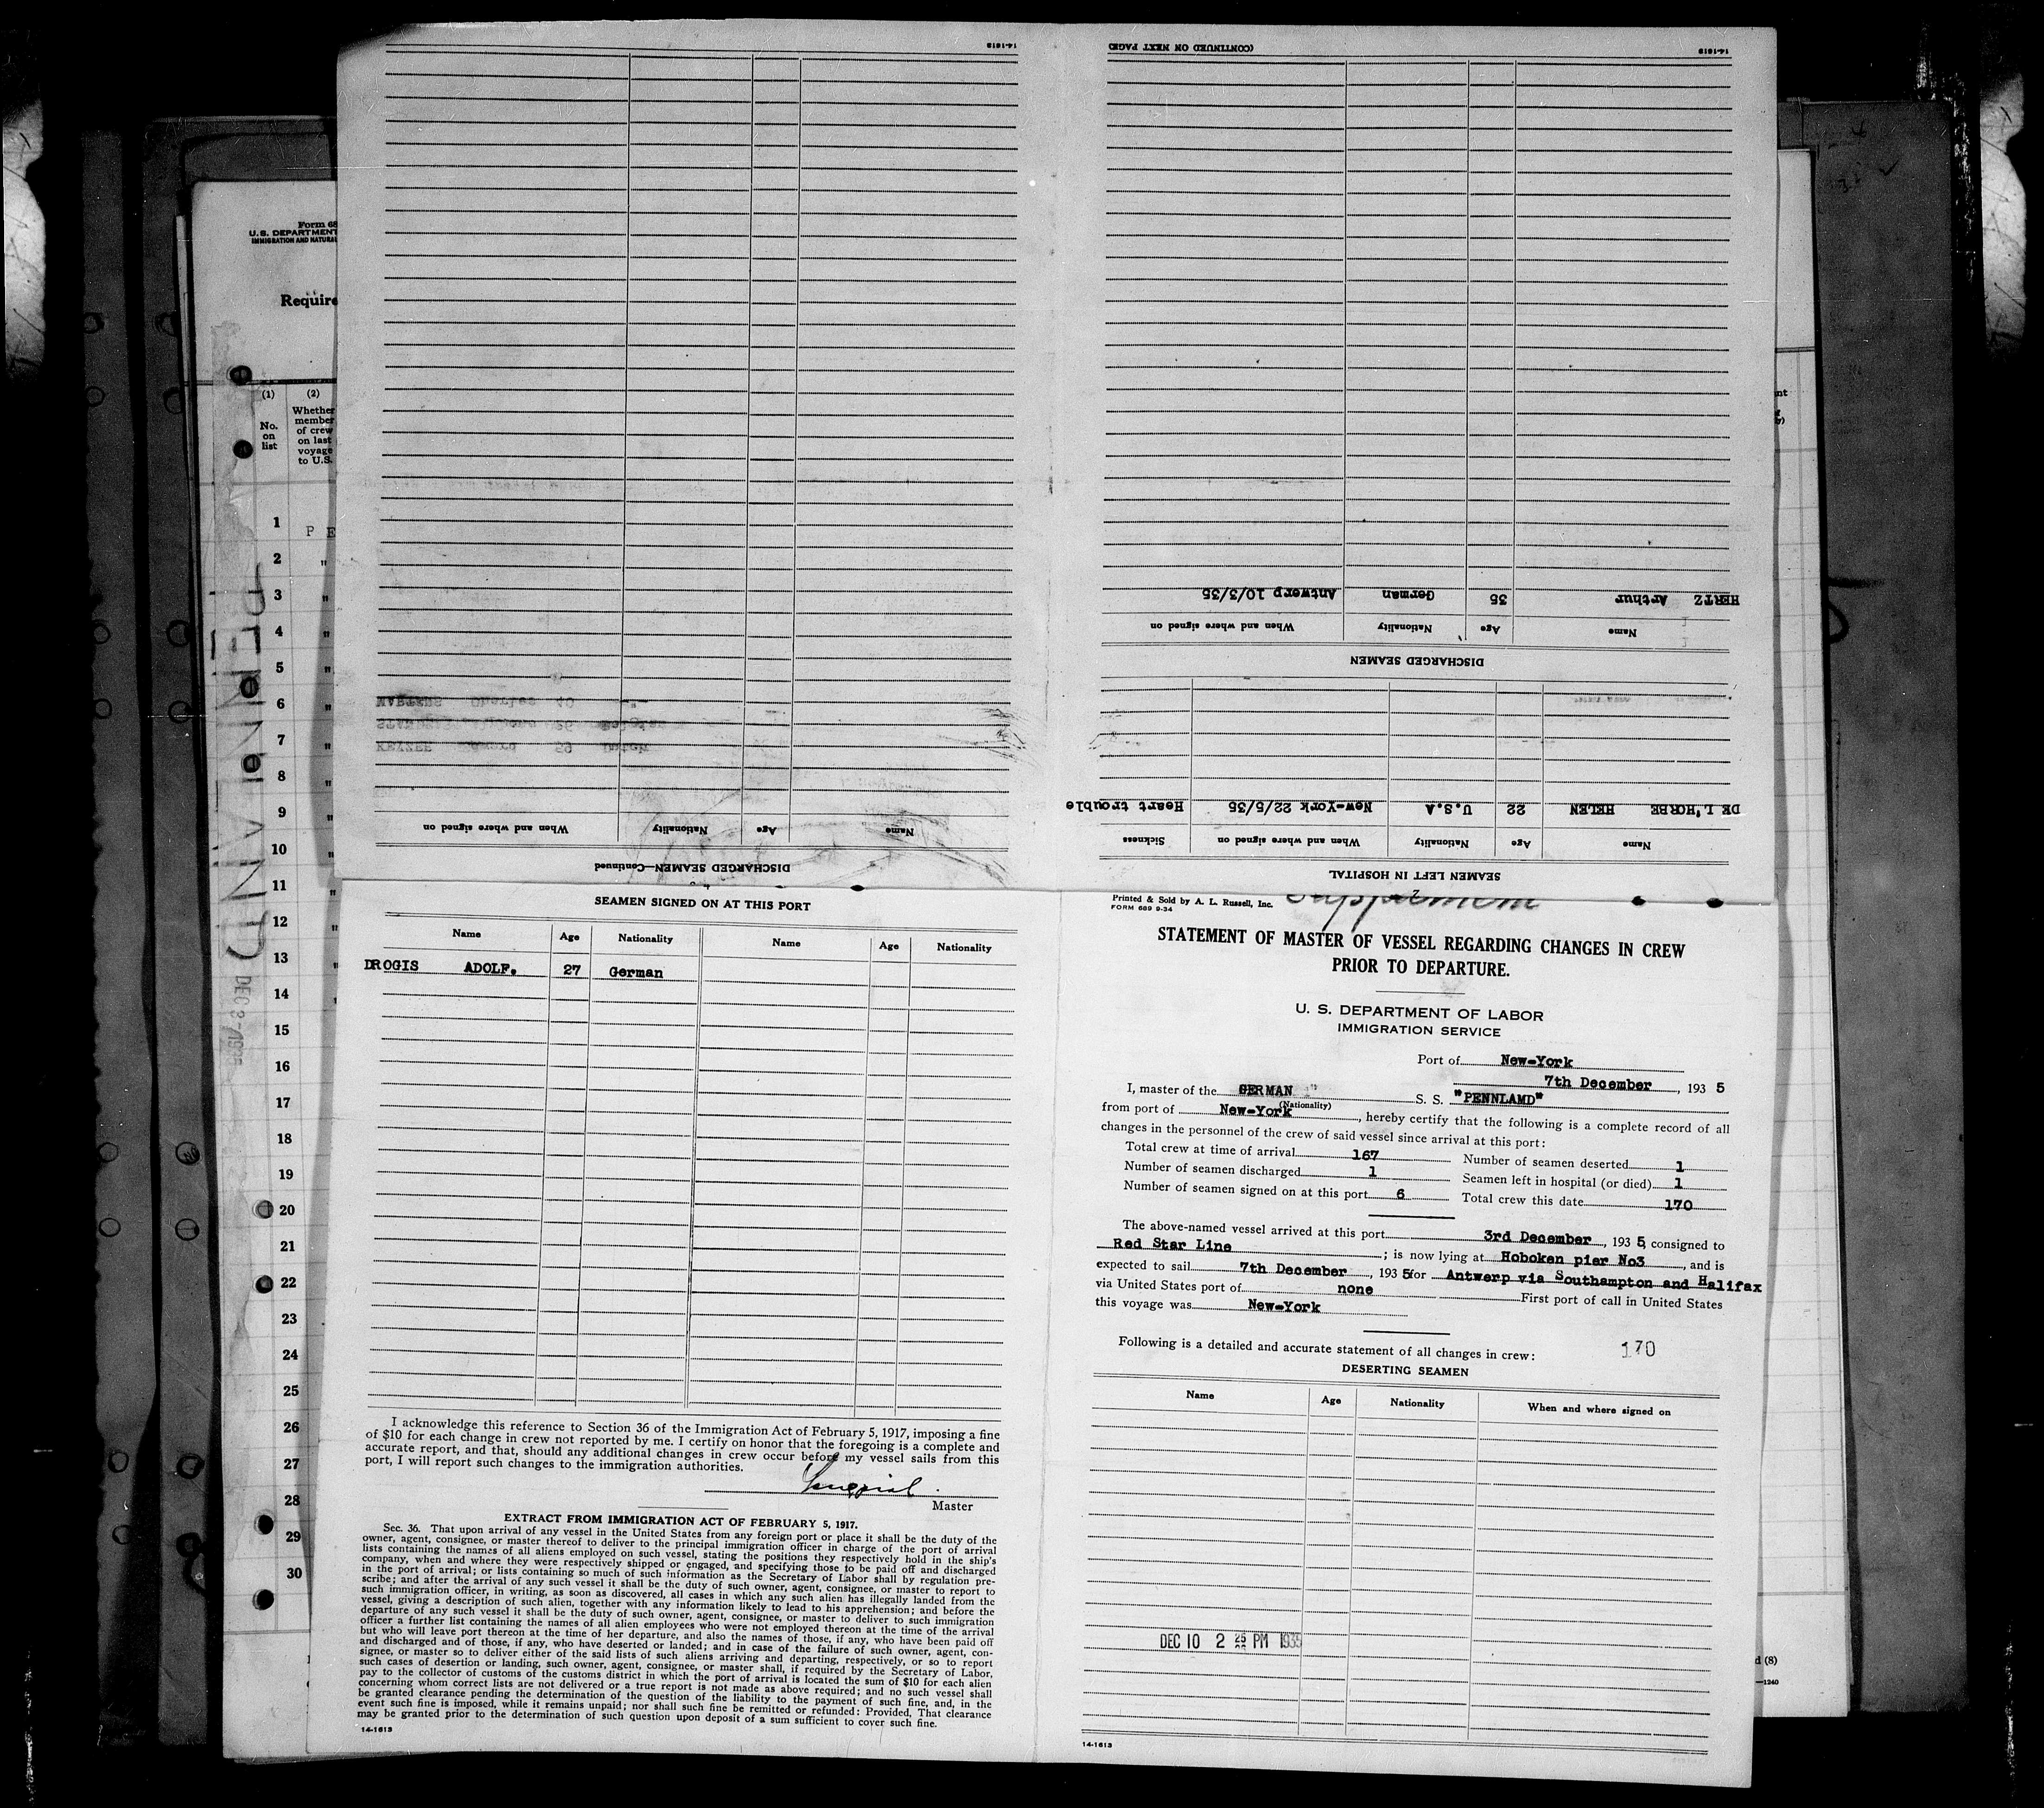 14-1613
(CONTINUED ON NEXT PAGE)
14-1613
HERTZ Arthur 35 German Antwerp 10/3/35
Name Age Nationality When and where signed on
DISCHARGED SEAMEN
DE L'HORBE HELEN 22 U.S.A New-York 22/5/35 Heart trouble
Name Age Nationality When and where signed on Sickness
SEAMEN LEFT IN HOSPITAL
Name Age Nationality When and where signed on
DISCHARGED SEAMEN—Continued
Form 68
U. S. DEPARTMENT
IMMIGRATION AND NATURAL
Require
(1) (2)
No. on list
Whether member of crew on last voyage to U.S.
1 P E
2 "
3 "
4 "
5 "
6 "
7 "
8 "
9 "
10 "
11 "
12 "
13 "
14 "
15
16
17
18
19
20
21
22
23
24
25
26
27
28
29
30
PENNLAND
DEC 3- 1935
SEAMEN SIGNED ON AT THIS PORT
Name Age Nationality Name Age Nationality
DROGIS ADOLF. 27 German
I acknowledge this reference to Section 36 of the Immigration Act of February 5, 1917, imposing a fine
of $10 for each change in crew not reported by me. I certify on honor that the foregoing is a complete and
accurate report, and that, should any additional changes in crew occur before my vessel sails from this
port, I will report such changes to the immigration authorities.
Master
EXTRACT FROM IMMIGRATION ACT OF FEBRUARY 5, 1917.
Sec. 36. That upon arrival of any vessel in the United States from any foreign port or place it shall be the duty of the
owner, agent, consignee, or master thereof to deliver to the principal immigration officer in charge of the port of arrival
lists containing the names of all aliens employed on such vessel, stating the positions they respectively hold in the ship's
company, when and where they were respectively shipped or engaged, and specifying those to be paid off and discharged
in the port of arrival; or lists containing so much of such information as the Secretary of Labor shall by regulation pre-
scribe; and after the arrival of any such vessel it shall be the duty of such owner, agent, consignee, or master to report to
such immigration officer, in writing, as soon as discovered, all cases in which any such alien has illegally landed from the
vessel, giving a description of such alien, together with any information likely to lead to his apprehension; and before the
departure of any such vessel it shall be the duty of such owner, agent, consignee, or master to deliver to such immigration
officer a further list containing the names of all alien employees who were not employed thereon at the time of the arrival
but who will leave port thereon at the time of her departure, and also the names of those, if any, who have been paid off
and discharged and of those, if any, who have deserted or landed; and in case of the failure of such owner, agent, con-
signee, or master so to deliver either of the said lists of such aliens arriving and departing, respectively, or so to report
such cases of desertion or landing, such owner, agent, consignee, or master shall, if required by the Secretary of Labor,
pay to the collector of customs of the customs district in which the port of arrival is located the sum of $10 for each alien
concerning whom correct lists are not delivered or a true report is not made as above required; and no such vessel shall
be granted clearance pending the determination of the question of the liability to the payment of such fine, and, in the
event such fine is imposed, while it remains unpaid; nor shall such fine be remitted or refunded: Provided, That clearance
may be granted prior to the determination of such question upon deposit of a sum sufficient to cover such fine.
14-1613
Supplement
Printed & Sold by A. L. Russell, Inc.
FORM 689 9-34
STATEMENT OF MASTER OF VESSEL REGARDING CHANGES IN CREW
PRIOR TO DEPARTURE.
U. S. DEPARTMENT OF LABOR
IMMIGRATION SERVICE
Port of New-York
7th December, 193 5
I, master of the GERMAN S. S. "PENNLAMD"
(Nationality)
from port of New-York, hereby certify that the following is a complete record of all
changes in the personnel of the crew of said vessel since arrival at this port:
Total crew at time of arrival 167 Number of seamen deserted 1
Number of seamen discharged 1 Seamen left in hospital (or died) 1
Number of seamen signed on at this port 6 Total crew this date 170
The above-named vessel arrived at this port 3rd December, 193 5, consigned to
Red Star Line; is now lying at Hoboken pier No3, and is
expected to sail 7th December, 193 5 for Antwerp via Southampton and Halifax
via United States port of none First port of call in United States
this voyage was New-York
Following is a detailed and accurate statement of all changes in crew: 170
DESERTING SEAMEN
Name Age Nationality When and where signed on
DEC 10 2 PM 1935
14-1613
nt
d (8)
—1240